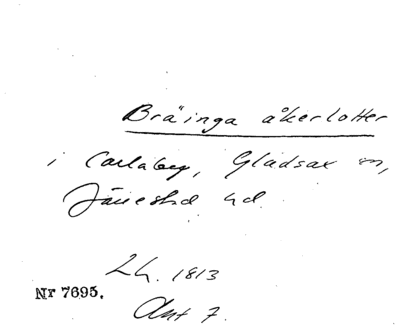 Bräinga åkerlotter
i Carlaby, Gladsax sn,
Järrestad hd.
2 h. 1813
Nr 7695.
Akt 7.